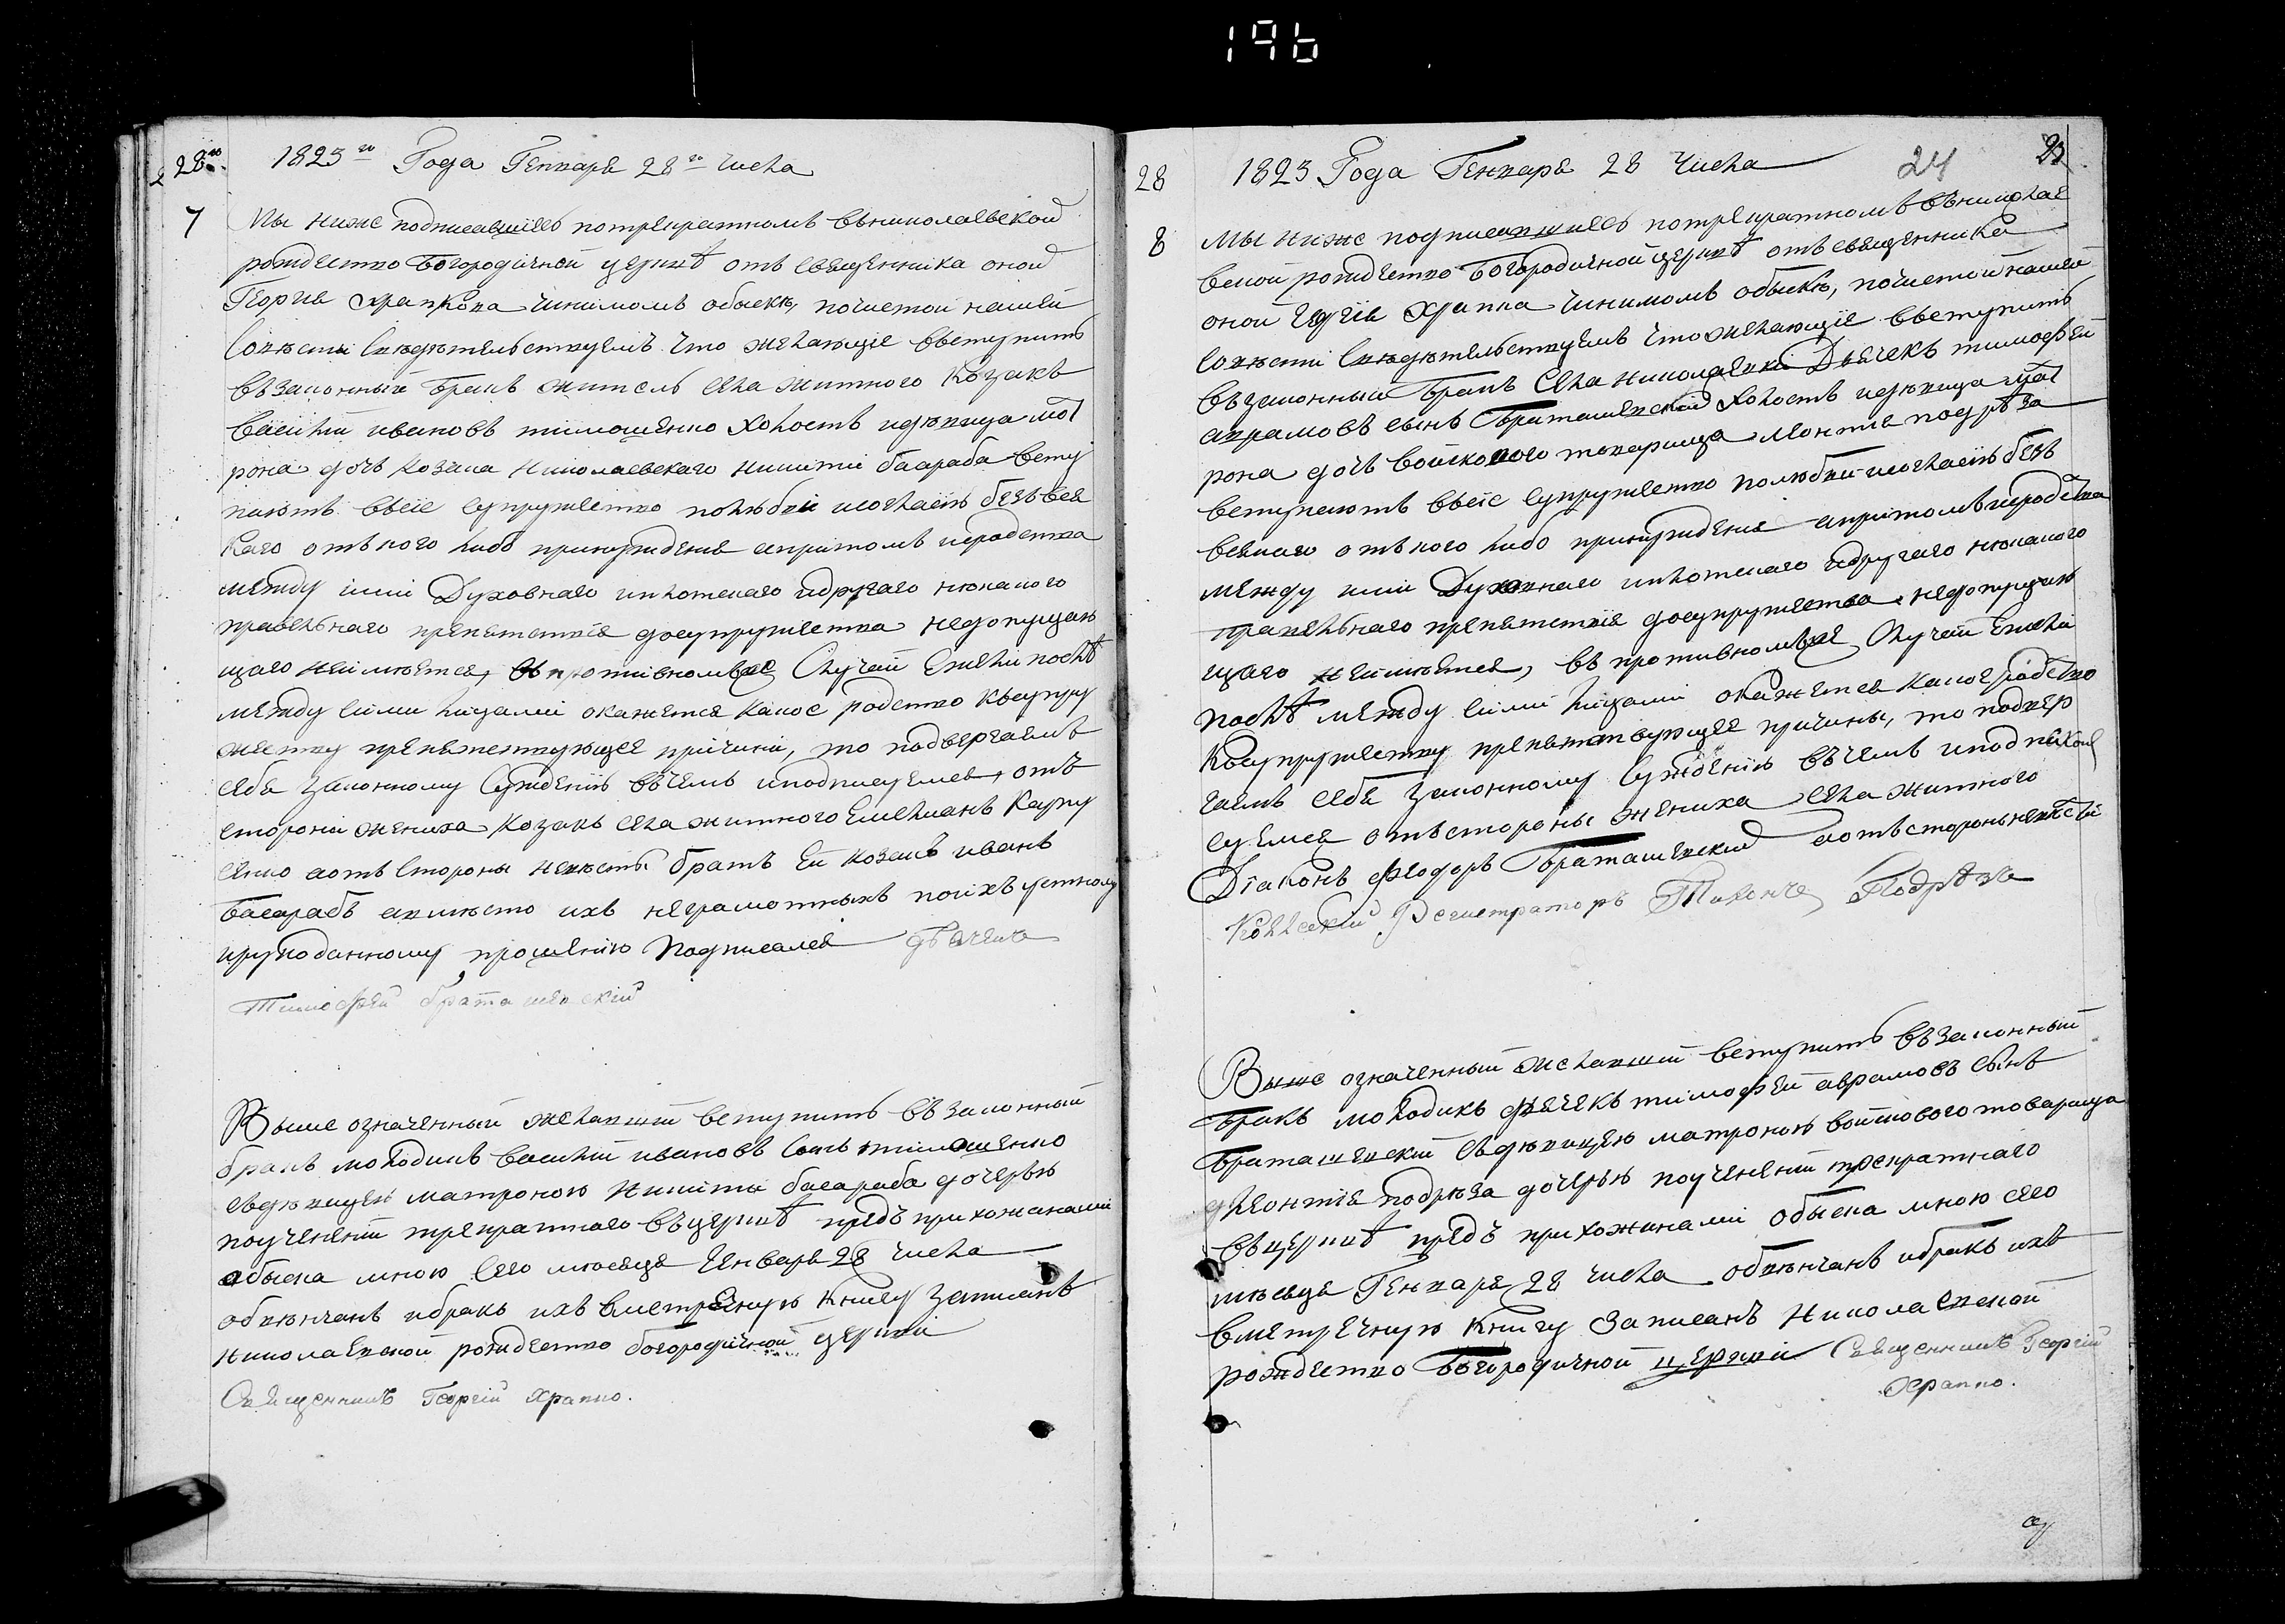 196
28го. 1823го Года Генваря 28го числа
7 Мы ниже подписавшіесь потрекратномъ вьниколаевской
рождество Богородичной церквѣ отъ священника оной
Георгія храпкова чинимомъ обыскѣ, почистой нашей
Совѣсти Свѣдѣтельствуемъ что желающіе ввступить
въ законный бракъ житель села житного Козакъ
василій ивановъ тимошенко холостъ идѣвица мат
рона дочь козака николаевскаго никити басараба всту
паютъ всіе супружество полюбви исогласію безъ вся
каго отъ кого либо принужденія апритомъ иродства
между ими Духовнаго иплотскаго идругаго нѣкакого
правельнаго препятствія досупружества недопущаю
щаго неимѣется, въ противномъ же Случаи Ежели послѣ
между сими лицами окажется какое родство ксупру
жеству препятствующее причини, то подвергаемъ
себя законному Сужденію въчемъ иподписуемся, отъ
стороны жениха Козакъ села житного Емельянъ Карпу
сенко аотъ Стороны невѣсты братъ Ей козакъ иванъ
басарабъ авмѣсто ихъ неграмотныхъ поихъ устному
ирукоданному прошенію Подписался дьячекъ
Тимофѣй браташевскій
Выше означенный желавшій вступить въ законный
бракъ молодикъ василій ивановъ сынъ тимошенко
сьдѣвицею матроною никиты басараба дочерью
поученіи трекратнаго въ церквѣ предъ прихожанами
обыска мною сего мѣсяца Генваря 28 числа
обвѣнчанъ ибракъ ихъ вметрическую книгу записанъ
николаевской рождество богородичной церкви
Священникъ Георгій Храпко.
28 1823 Года Генваря 28 числа 24
8 Мы ниже подписавшіесь потрекратномъ вьниколае
вской рождество Богородичной церквѣ отъ священника
оной Георгія Храпка чинимомъ обыскѣ, почистой нашей
совѣсти Свѣдѣтельствуемъ что желающіе ввступить
въ законный бракъ Села николаевки Дьячекъ тимофѣй
аврамовъ сынъ Браташевскій холостъ идѣвица мат
рона дочь войскового товарища леонтія подрѣза
вступаютъ всіе супружество полюбви исогласію безъ
всякаго отъ кого либо принужденія апритомъ иродства
между ими Духовнаго иплотскаго идругаго нѣкакого
правельнаго препятствія досупружества недопущаю
щаго неимѣется, въ противномъ же Случаи Ежели
послѣ между сими лицами окажется какое родство
Ксупружеству препятствующее причины, то подвер
гаемъ себя законному Сужденію въ чемъ иподпи
суемся отъ стороны жениха села житного
Діаконъ Феодоръ Браташевскій аотъ стороны невѣсты
Колежскій Регистраторъ Подрѣза
Выше означенный желавшій вступить въ законный
бракъ молодикъ дьячекъ тимофѣй аврамовъ сынъ
Браташевскій сьдѣвицею матроною войскового товарища
леонтія подрѣза дочерью поученіи трекратнаго
въ церквѣ предъ прихожанами обыска мною сего
мѣсяца Генваря 28 числа обвѣнчанъ ибракъ ихъ
вметрическую книгу Записанъ Николаевской
рождество Богородичной церкви Священникъ Георгій
Храпко.